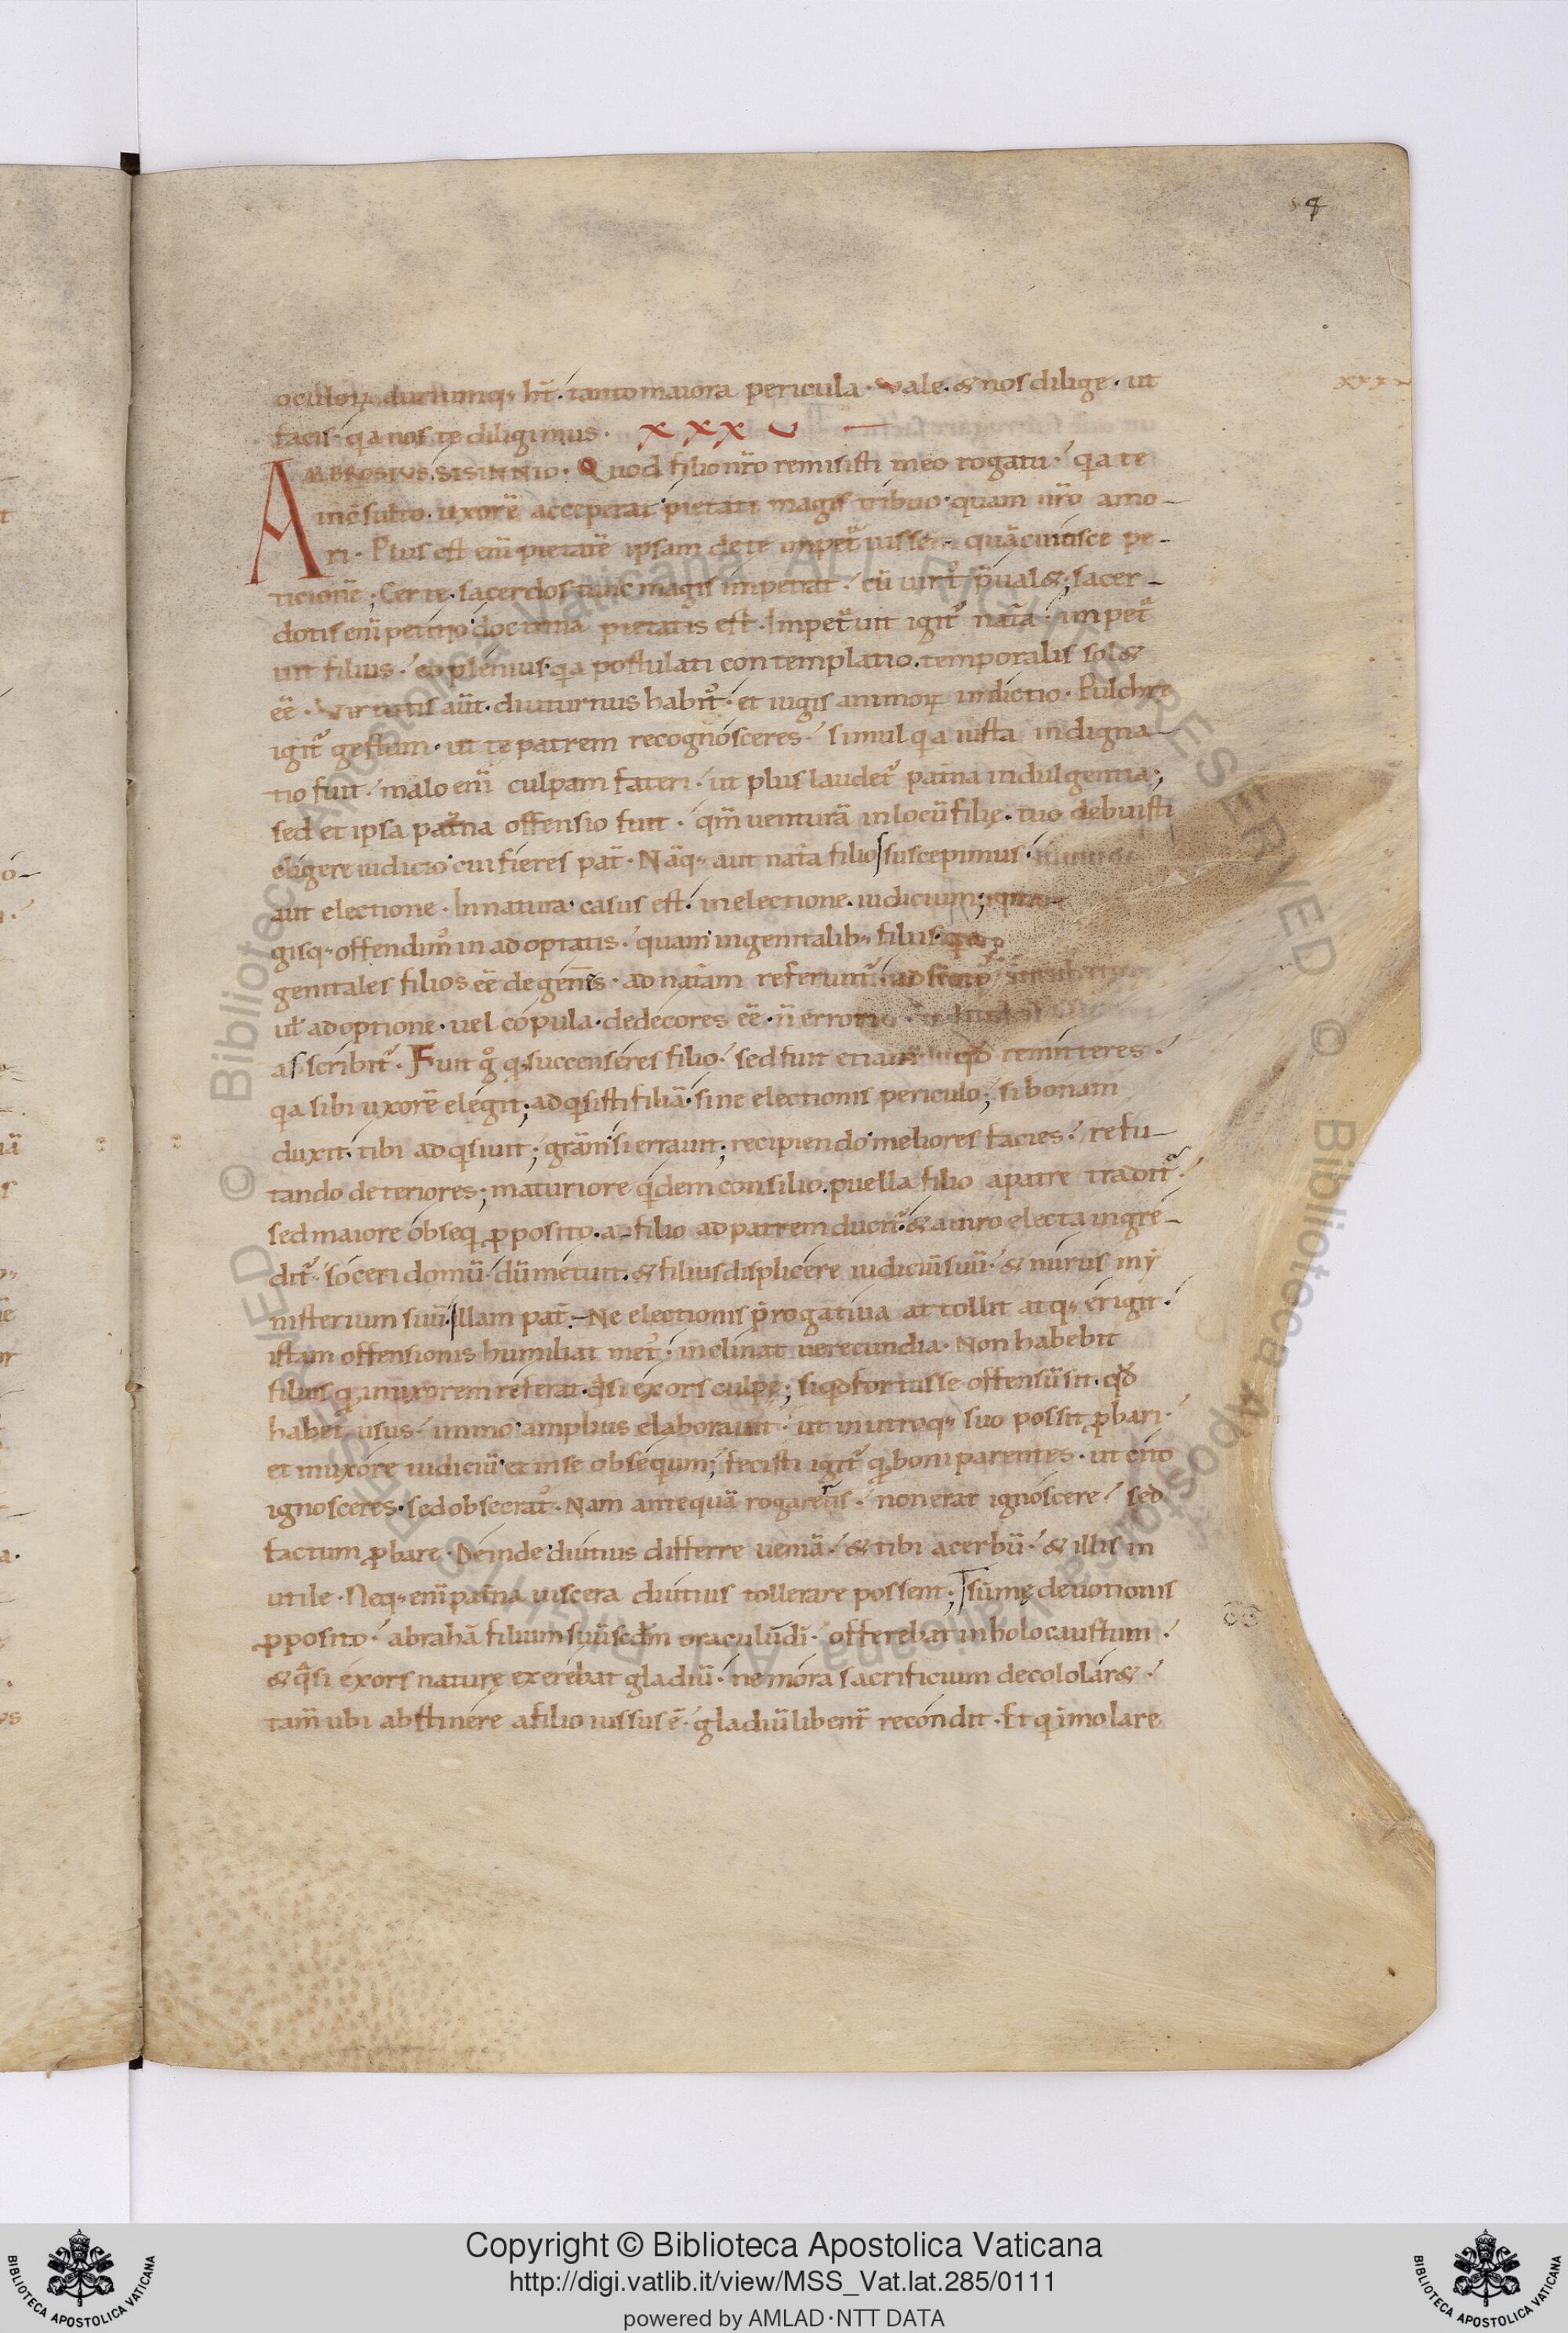 oculoꝝ. durumq· ht̄. tanto maiora pericula · Vale · & nos dilige · ut
facis · qa nos te diligimus · XXXV
AMBROSIVS. SISINNIO · Quod filio nr̄o remisisti meo rogatu · qa te
incōsulto · uxorē acceperat pietati magis tribuo · quam nr̄o amo-
ri · Plus est enī pietatē ipsam de te quācuiusce pe-
ticionē; Certe · sacerdos tunc magis impetrat · cū p̄ual&; sacer-
dotis enī petitio doctrina pietatis est · Impetͣuit igitͬ nat̄a · impetͣ
uit filius · eo plenius · qa postulati contemplatio · temporalis sol&
eē · Virtutis aūt · diuturnus habitͥ · et iugis animoꝝ indictio · Pulchre
igitͬ gestum · ut te patrem recognosceres · simul qa iusta indigna-
tio fuit · malo enī culpam fateri · ut plus laudetͬ pat̄na indulgentia;
sed et ipsa pat̄na offensio fuit · qm̄ uenturā in locū filię · tuo debuisti
eligere iudicio cui fieres pat̄ · Nāq· aut nat̄a filios suscepimus ·
aut electione · In natura casus est · in electione · iudicium;
gisq· offendimͥ in adoptatis · quam in genitalib· filiis · qa
genitales filios eē degen̄es · ad nat̄am referuntͬ ·
ul̄ adoptione · uel copula · dedecores eē · n̄ errori
asscribitͬ · Fuit g̊ q· succenseres filio · sed fuit etiam qđ remitteres ·
qa sibi uxorē elegit; adqsisti filiā · sine electionis periculo; si bonam
duxit · tibi adqsiuit; grām · si errauit; recipiendo meliores facies · refu-
tando deteriores; maturiore qdem consilio · puella filio a patre traditͬ ·
sed maiore obseq ꝓposito · a filio ad patrem ducitͬ · & a uiro electa ingre-
ditͬ · soceri domū · dū metuit · & filius displicere iudiciū suū · & nurus my
nisterium suū · Illam pat̄ne electionis p̄rogatiua attollit atq· erigit ·
istam offensionis humiliat metͥ · inclinat uerecundia · Non habebit
filius q in uxorem referat · qͣsi exors culpę; siqđ fortasse offensū sit · qđ
habet usus · immo amplius elaborauit · ut in utroq· suo possit ꝓbari ·
et in uxore iudiciū et in se obsequm; fecisti igitͬ q boni parentes · ut cito
ignosceres · sed obsecratͥ · Nam antequā rogareris · non erat ignoscere · sed
factum ꝓbare · Deinde diutius differre ueniā · & tibi acerbū · & illis in
utile · Neq· enī pat̄na uiscera diutius tollerare possent; sūmę deuotionis
ꝓposito · abrahā filium suū scdm oraculū dī · offerebat in holocaustum ·
& qͣsi exors naturę exerebat gladiū · ne mora sacrificium decololar& ·
tam̄ ubi abstinere a filio iussus ē · gladiū libent̄ recondit · Et q imolare
Copyright © Biblioteca Apostolica Vaticana
http://digi.vatlib.it/view/MSS_Vat.lat.285/0111
powered by AMLAD·NTT DATA
BIBLIOTECA APOSTOLICA VATICANA
BIBLIOTECA APOSTOLICA VATICANA